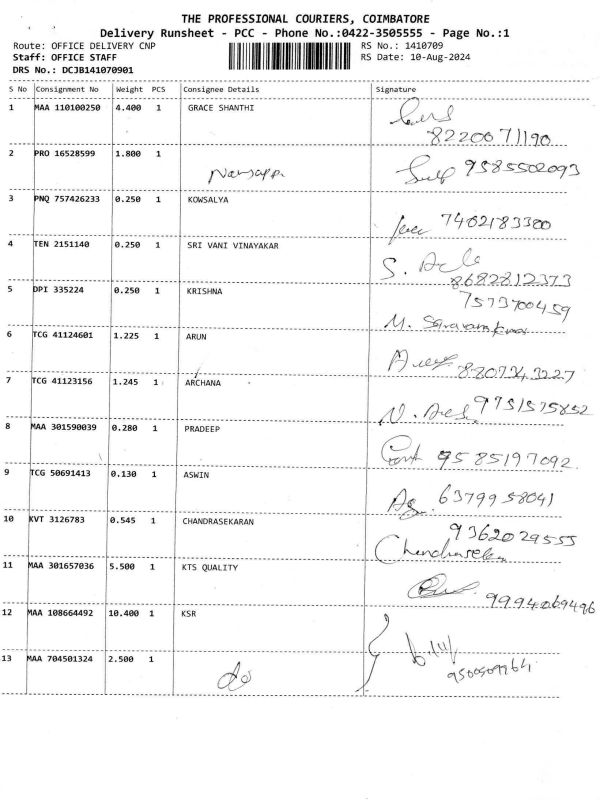 THE PROFESSIONAL COURIERS, COIMBATORE
Delivery Runsheet - PCC - Phone No.:0422-3505555 - Page No.:1
Route: OFFICE DELIVERY CNP RS No.: 1410709
Staff: OFFICE STAFF RS Date: 10-Aug-2024
DRS No.: DCJB141070901
S No Consignment No Weight PCS Consignee Details Signature
1 MAA 110100250 4.400 1 GRACE SHANTHI
8220071190
2 PRO 16528599 1.800 1
9585502093
3 PNQ 757426233 0.250 1 KOWSALYA
7402183380
4 TEN 2151140 0.250 1 SRI VANI VINAYAKAR
8682812373
5 DPI 335224 0.250 1 KRISHNA
7573700459
M.
6 TCG 41124601 1.225 1 ARUN
7 TCG 41123156 1.245 1 ARCHANA
9751575852
8 MAA 301590039 0.280 1 PRADEEP
9585197092
9 TCG 50691413 0.130 1 ASWIN
6379958041
10 KVT 3126783 0.545 1 CHANDRASEKARAN
9362029555
11 MAA 301657036 5.500 1 KTS QUALITY
9994069496
12 MAA 108664492 10.400 1 KSR
13 MAA 704501324 2.500 1
do